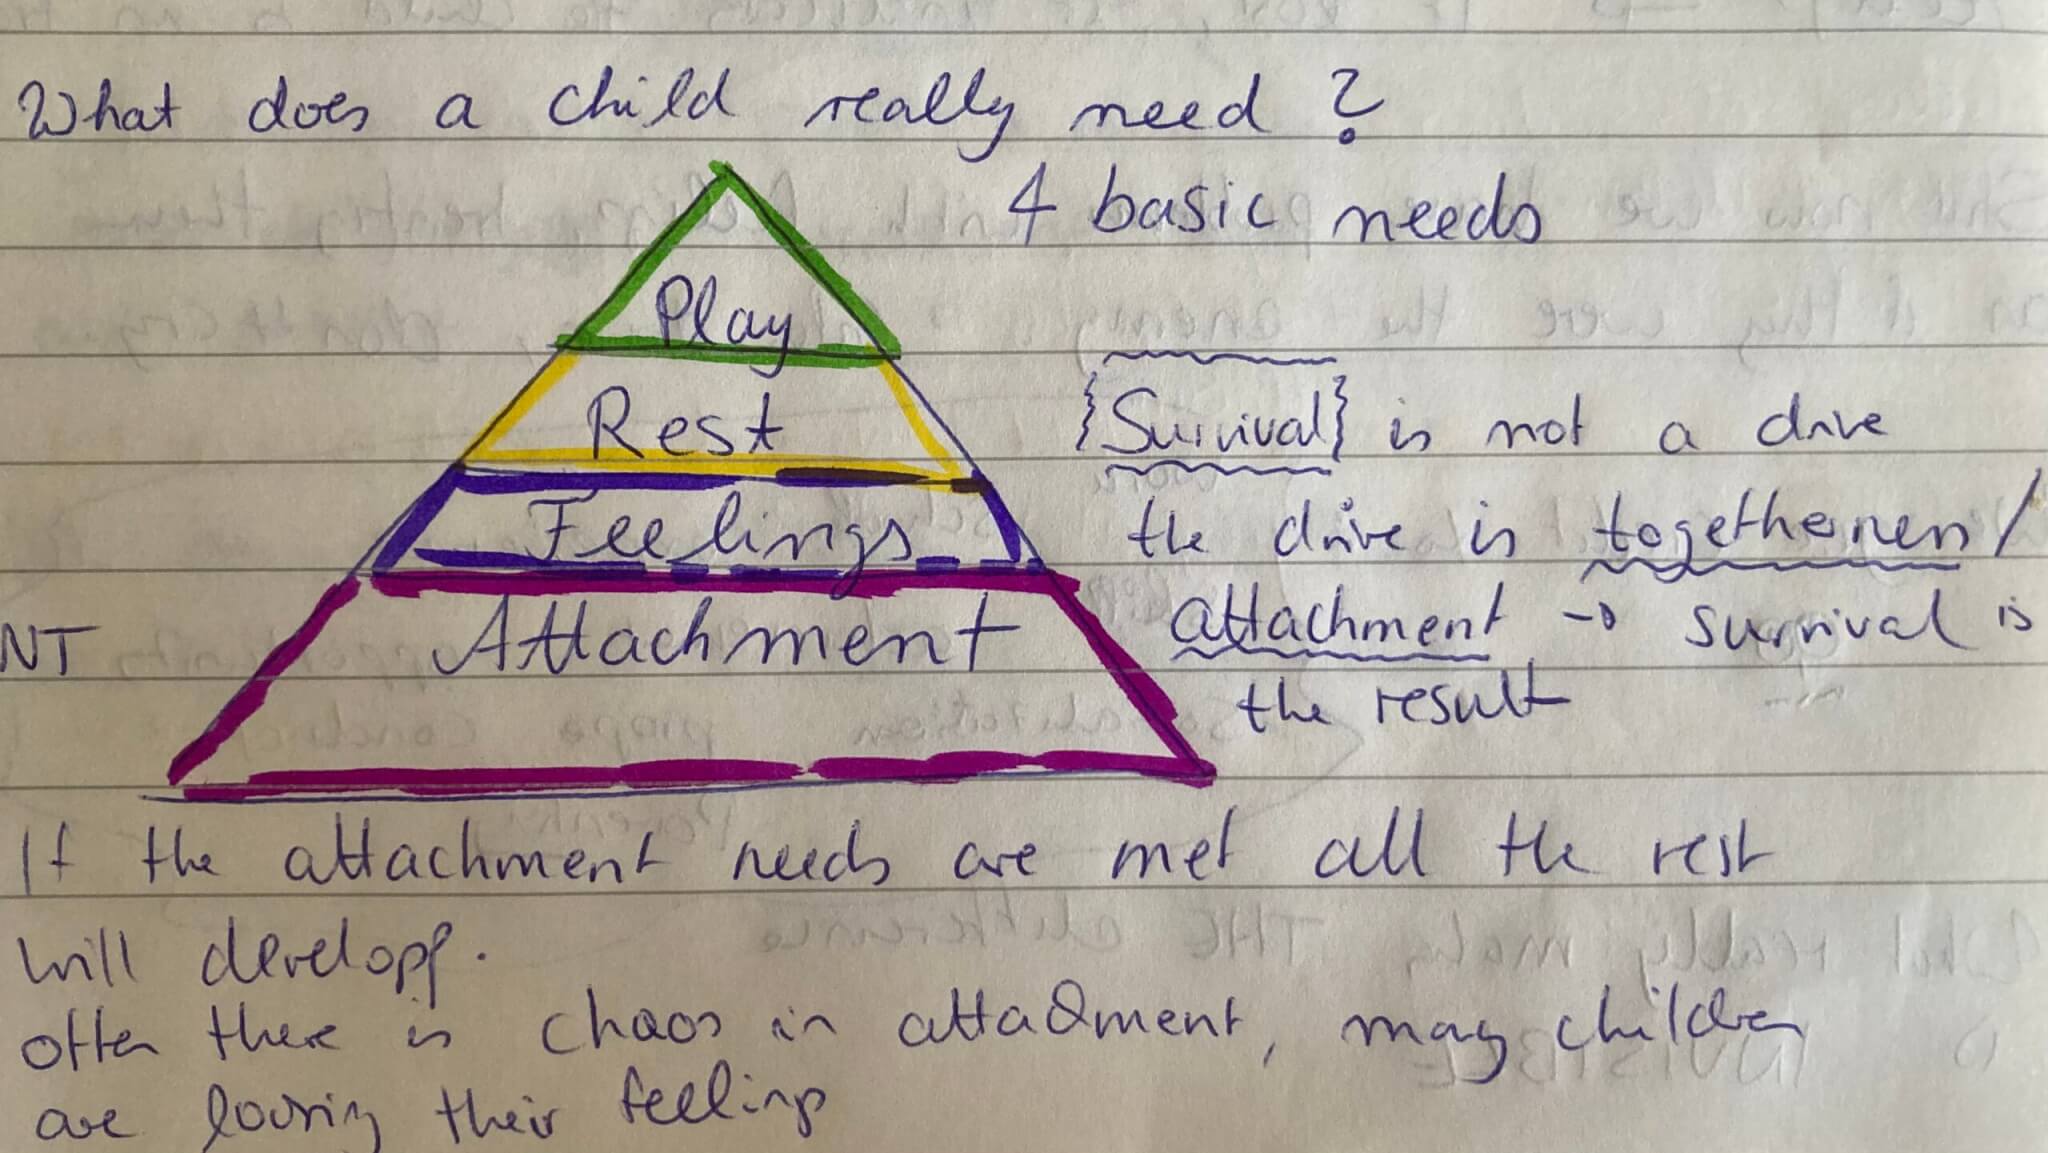 What does a child really need?
4 basic needs
Play
Rest
Feelings
Attachment
NT
{Survival} is not a drive
the drive is togetherness/
attachment → survival is
the result
If the attachment needs are met all the rest
will develop.
often there is chaos in attachment, many children
are loosing their feelings